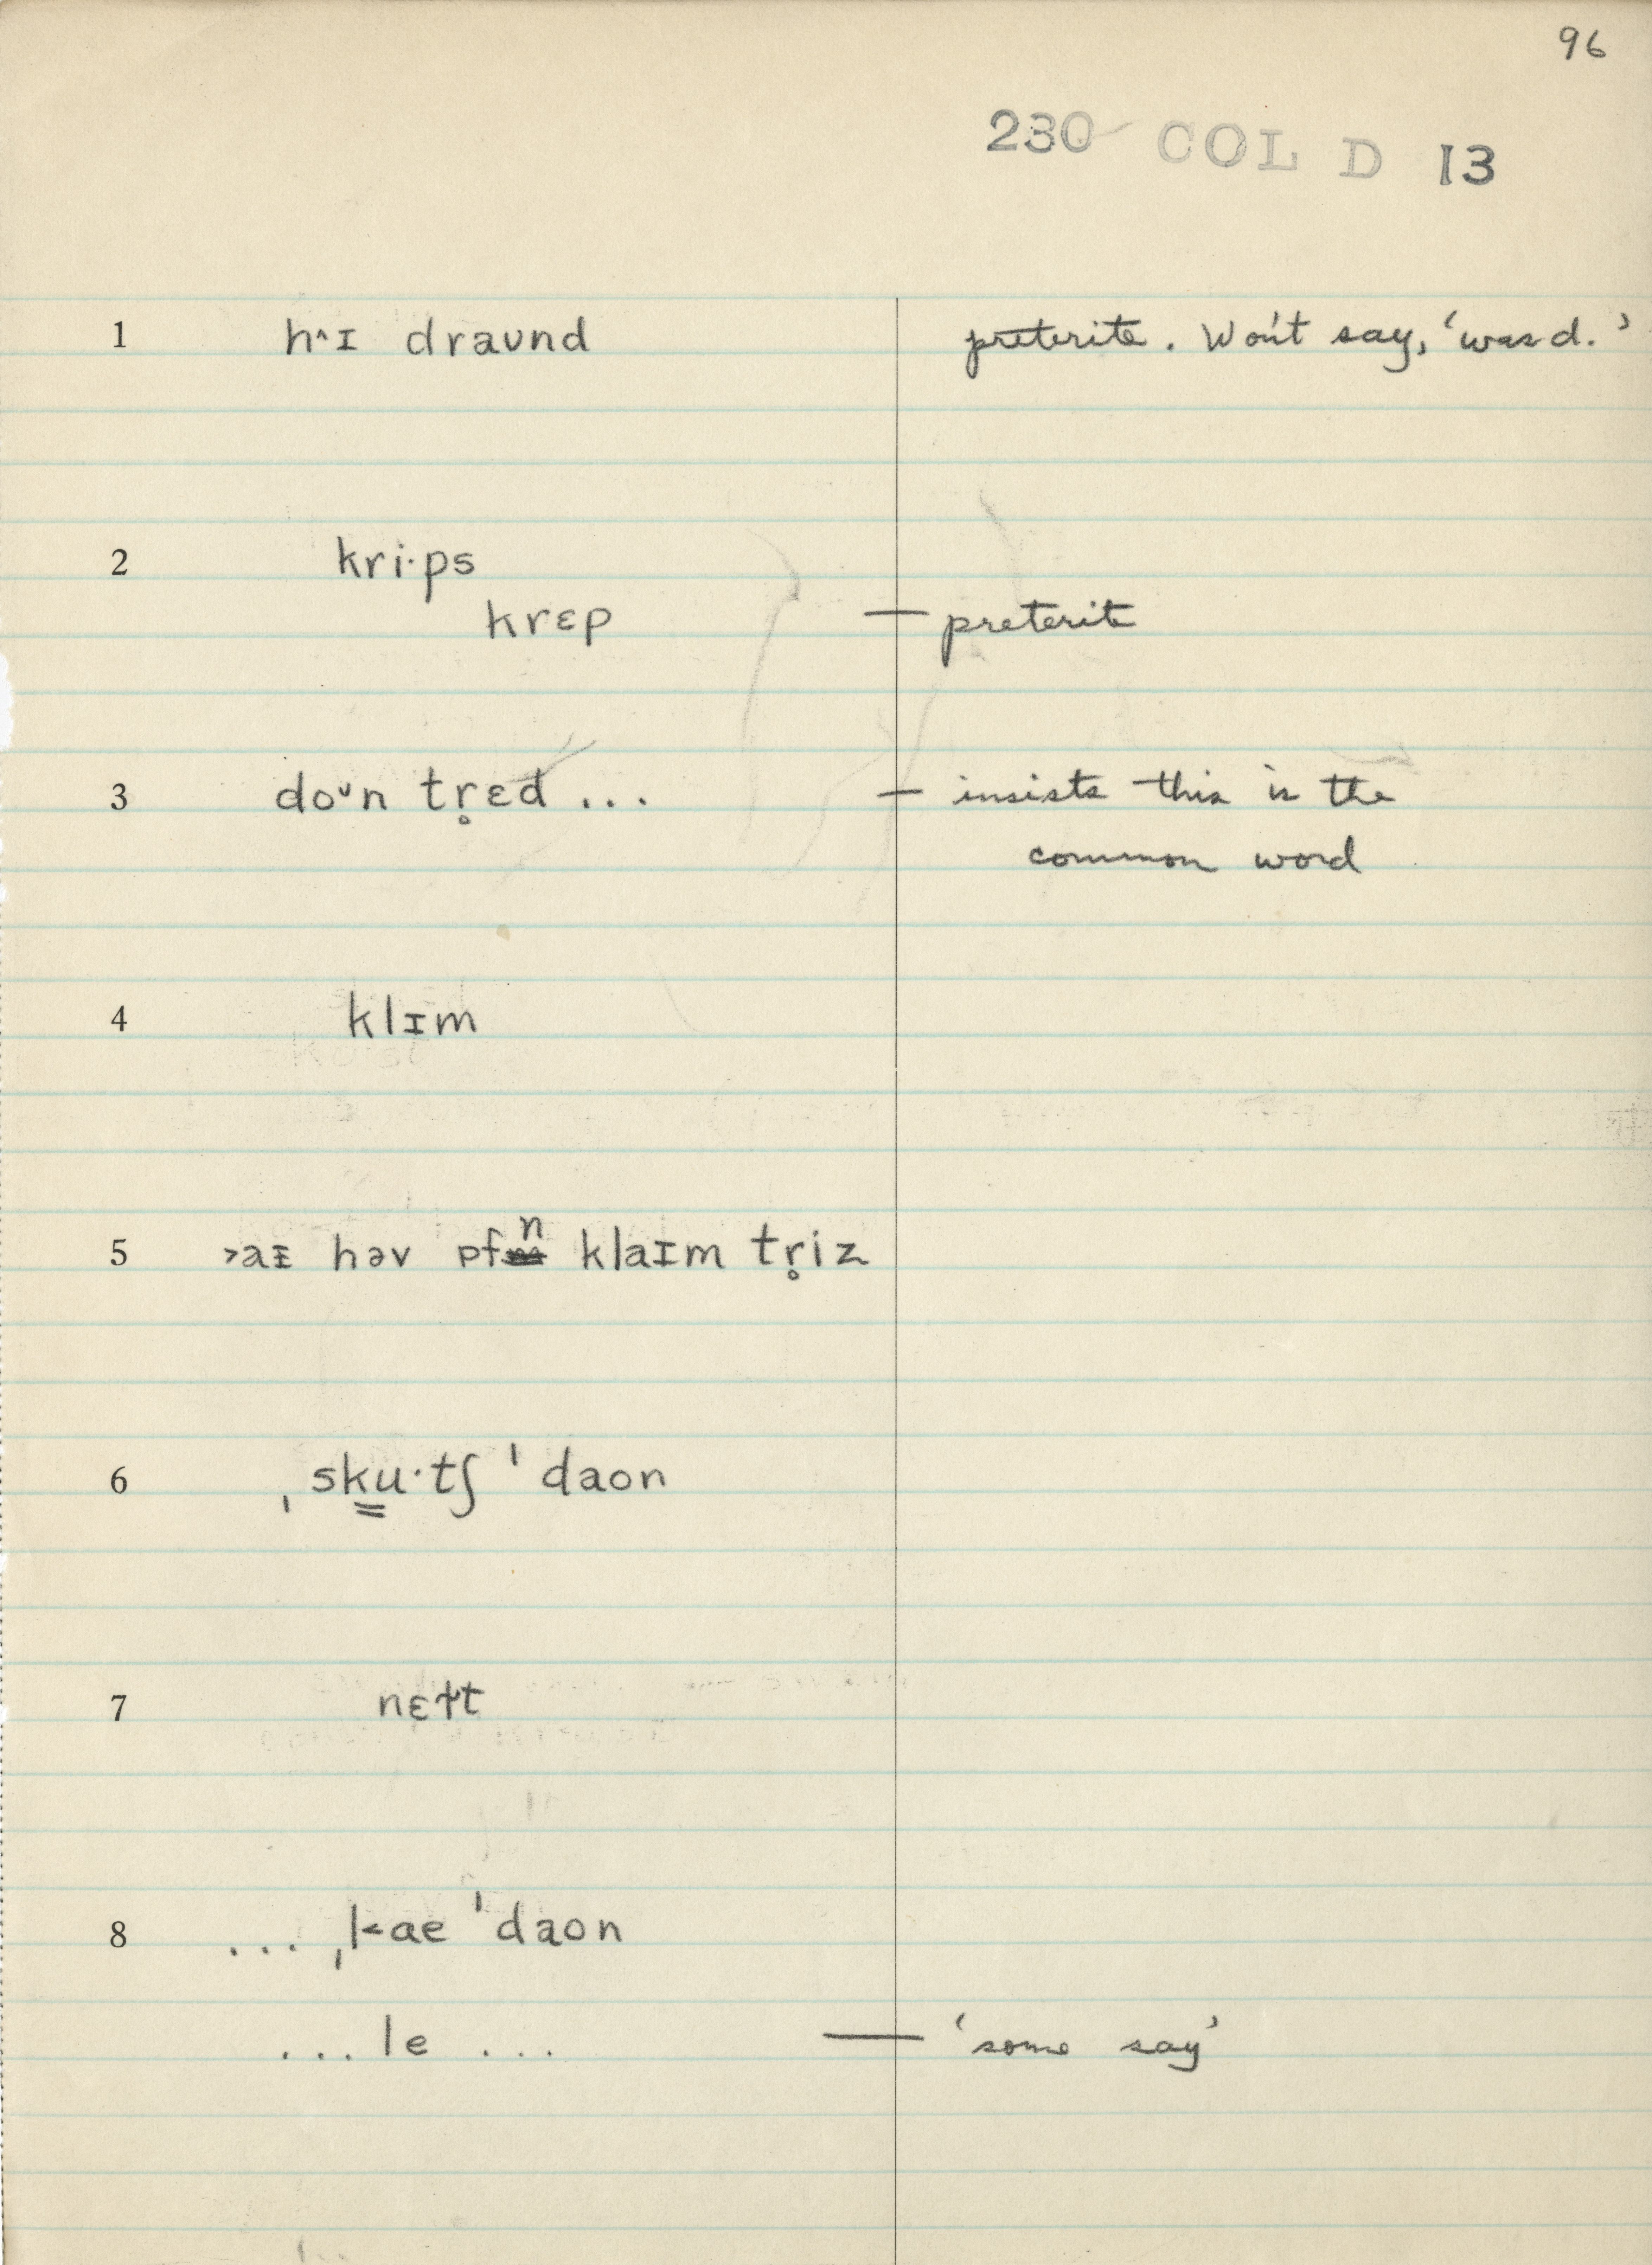 96
230 COL D 13
1 h^ɪ draʊnd preterite. Won't say, 'was d.'
2 kri·ps
krɛp — preterit
3 doᶸn tr̥ɛd ... — insists this is the
common word
4 klɪm
5 ˃aɪ həv pfn klaɪm tr̥iz
6 ˌsku̳·tʃ ˈdaon
7 nɛɫt
8 ... ˌl˂ae ˈdaon
... le ... — 'some say'